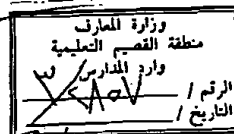 وزارة المعارف
منطقة القصيم التعليمية
وارد المدارس
الرقم /
التاريخ /